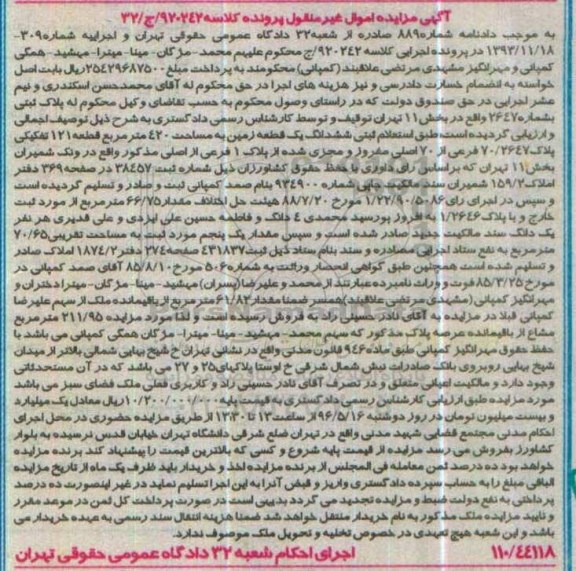 آگهی مزایده اموال غیرمنقول پرونده کلاسه ۹۲۰۲۴۲/ج/۳۲
به موجب دادنامه شماره ۸۸۹ صادره از شعبه ۳۲ دادگاه عمومی حقوقی تهران و اجراییه شماره ۳۰۹-
۱۳۹۳/۱۱/۱۸ در پرونده اجرایی کلاسه ۹۲۰۲۴۲/ج محکوم علیهم محمد- مژگان- مینا- میترا- مهشید- همگی
کمپانی و مهرانگیز مشهدی مرتضی علاقبند (کمپانی) محکومند به پرداخت مبلغ ۲۵۴۲۹۶۸۷۵۰۰ ریال بابت اصل
خواسته به انضمام خسارت دادرسی و نیز هزینه های اجرا در حق محکوم له آقای محمدحسن اسکندری و نیم
عشر اجرایی در حق صندوق دولت که در راستای وصول محکوم به حسب تقاضای وکیل محکوم له پلاک ثبتی
بشماره ۲۶۴۷ واقع در بخش ۱۱ تهران توقیف و توسط کارشناس رسمی دادگستری به شرح ذیل توصیف اجمالی
و ارزیابی گردیده است: طبق استعلام ثبتی ششدانگ یک قطعه زمین به مساحت ۴۲۰ متر مربع قطعه ۱۲۱ تفکیکی
پلاک ۷۰/۲۶۴۷ فرعی از ۷۰ اصلی مفروز و مجزی شده از پلاک ۱ فرعی از اصلی مذکور واقع در ونک شمیران
بخش ۱۱ تهران که براساس رای داوری با حفظ حقوق کشاورزان ذیل شماره ثبت ۳۸۴۵۷ در صفحه ۳۶۹ دفتر
املاک ۱۵۹/۲ شمیران سند مالکیت چاپی شماره ۹۳۴۹۰۰ بنام صمد کمپانی ثبت و صادر و تسلیم گردیده است
و سپس در اجرای رای ۵-۸۶/۱/۲۲/۹۰۰ مورخ ۸۸/۷/۲۰ هیئت حل اختلاف مقدار ۶۶/۷۵ متر مربع از مورد ثبت
خارج و با پلاک ۱/۲۶۴۶ به افروز پورسید محمدی ۴ دانگ و فاطمه حسین علی ایزدی و علی قدیری هر نفر
یک دانگ سند مالکیت جدید صادر شده است و سپس مقدار یک پنجم مورد ثبت به مساحت تقریبی ۷۰/۶۵
متر مربع به نفع ستاد اجرایی مصادره و سند بنام ستاد ذیل ثبت ۴۳۱۸۳۷ صفحه ۲۷۴ دفتر ۱۸۷۴/۲ املاک صادر
و تسلیم شده است همچنین طبق گواهی انحصار وراثت به شماره ۵۰۶ مورخ ۸۵/۸/۱۰ آقای صمد کمپانی در
مورخ ۸۵/۳/۲۵ فوت و وراث نامبرده عبارتند از محمد و علیرضا (پسران) مهشید- مینا- مژگان- میترا دختران و
مهرانگیز کمپانی (مشهدی مرتضی علاقبند) همسر ضمنا مقدار ۶۱/۸۲ متر مربع از باقیمانده ملک از سهم علیرضا
کمپانی قبلا در مزایده به آقای نادر حسینی راد به فروش رسیده است. و لذا مورد مزایده ۲۱۱/۹۵ متر مربع
مشاع از باقیمانده عرصه پلاک مذکور که سهم محمد- مهشید- مینا- میترا- مژگان همگی کمپانی می باشد با
حفظ حقوق مهرانگیز کمپانی طبق ماده ۹۴۶ قانون مدنی واقع در نشانی تهران خ شیخ بهایی شمالی بالاتر از میدان
شیخ بهایی روبروی بانک صادرات نبش شمال شرقی خ اوستا پلاکهای ۲۵ و ۲۷ می باشد که در آن مستحدثاتی
وجود دارد و مالکیت اعیانی متعلق و در تصرف آقای نادر حسینی راد و کاربری فعلی ملک فضای سبز می باشد
مورد مزایده طبق ارزیابی کارشناس رسمی دادگستری به قیمت پایه ۱۰/۲۰۰/۰۰۰/۰۰۰ ریال معادل یک میلیارد
و بیست میلیون تومان در روز دوشنبه ۹۶/۵/۱۶ از ساعت ۱۳ تا ۱۳:۳۰ از طریق مزایده حضوری در محل اجرای
احکام مدنی مجتمع قضایی شهید مدنی واقع در تهران ضلع شرقی دانشگاه تهران خیابان قدس نرسیده به بلوار
کشاورز بفروش می رسد مزایده از قیمت پایه شروع و کسی که بالاترین قیمت را پیشنهاد کند برنده مزایده
خواهد بود ده درصد ثمن معامله فی المجلس از برنده مزایده اخذ و خریدار باید ظرف یک ماه از تاریخ مزایده
الباقی مبلغ را به حساب سپرده دادگستری واریز و قبض آنرا به این اجرا تسلیم نماید در غیر اینصورت ده درصد
پرداختی به نفع دولت ضبط و مزایده تجدید می گردد بدیهی است در صورت پرداخت کل ثمن در موعد مقرر
و تایید مزایده ملک مذکور به نام خریدار منتقل خواهد شد ضمنا هزینه انتقال سند رسمی به عهده خریدار می
باشد و این شعبه هیچ تعهدی در خصوص تخلیه و تحویل ملک موصوف ندارد.
۱۱۰/۴۴۱۱۸ اجرای احکام شعبه ۳۲ دادگاه عمومی حقوقی تهران